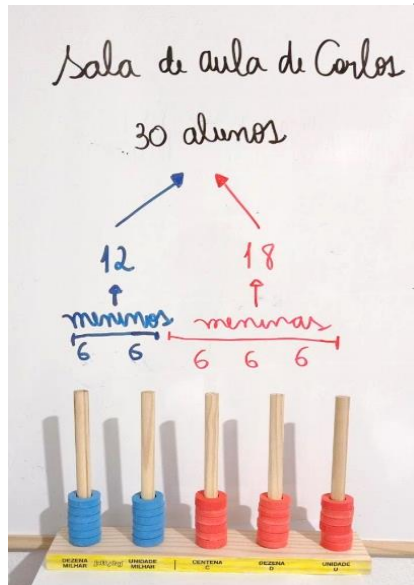 Sala de aula de Carlos
30 alunos
12 18
meninos meninas
6 6 6 6 6
DEZENA MILHAR UNIDADE MILHAR CENTENA C DEZENA D UNIDADE U